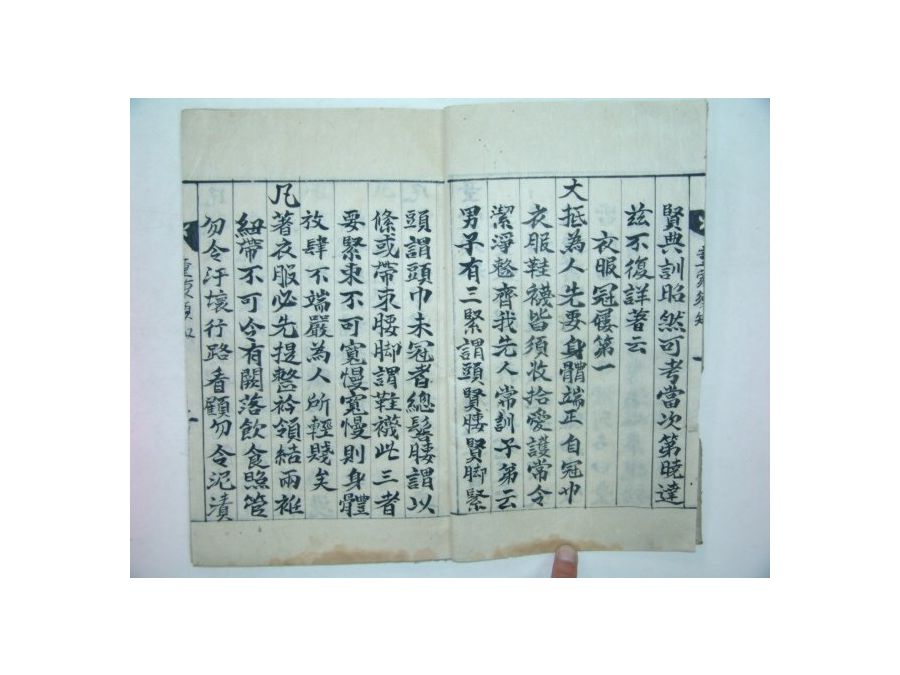 童蒙須知
賢典訓昭然可考當次第曉達
玆不復詳著云
衣服冠屨第一
大抵為人先要身體端正自冠巾
衣服鞋襪皆須收拾愛護常令
潔淨整齊我先人常訓子弟云
男子有三緊謂頭賢腰賢脚緊
頭謂頭巾未冠者總髻腰謂以
絛或帶束腰脚謂鞋襪此三者
要緊束不可寬慢寬慢則身體
放肆不端嚴為人所輕賤矣
凡著衣服必先提整衿領結兩袵
紐帶不可令有闕落飲食照管
勿令汙壞行路看顧勿令泥漬
童蒙須知